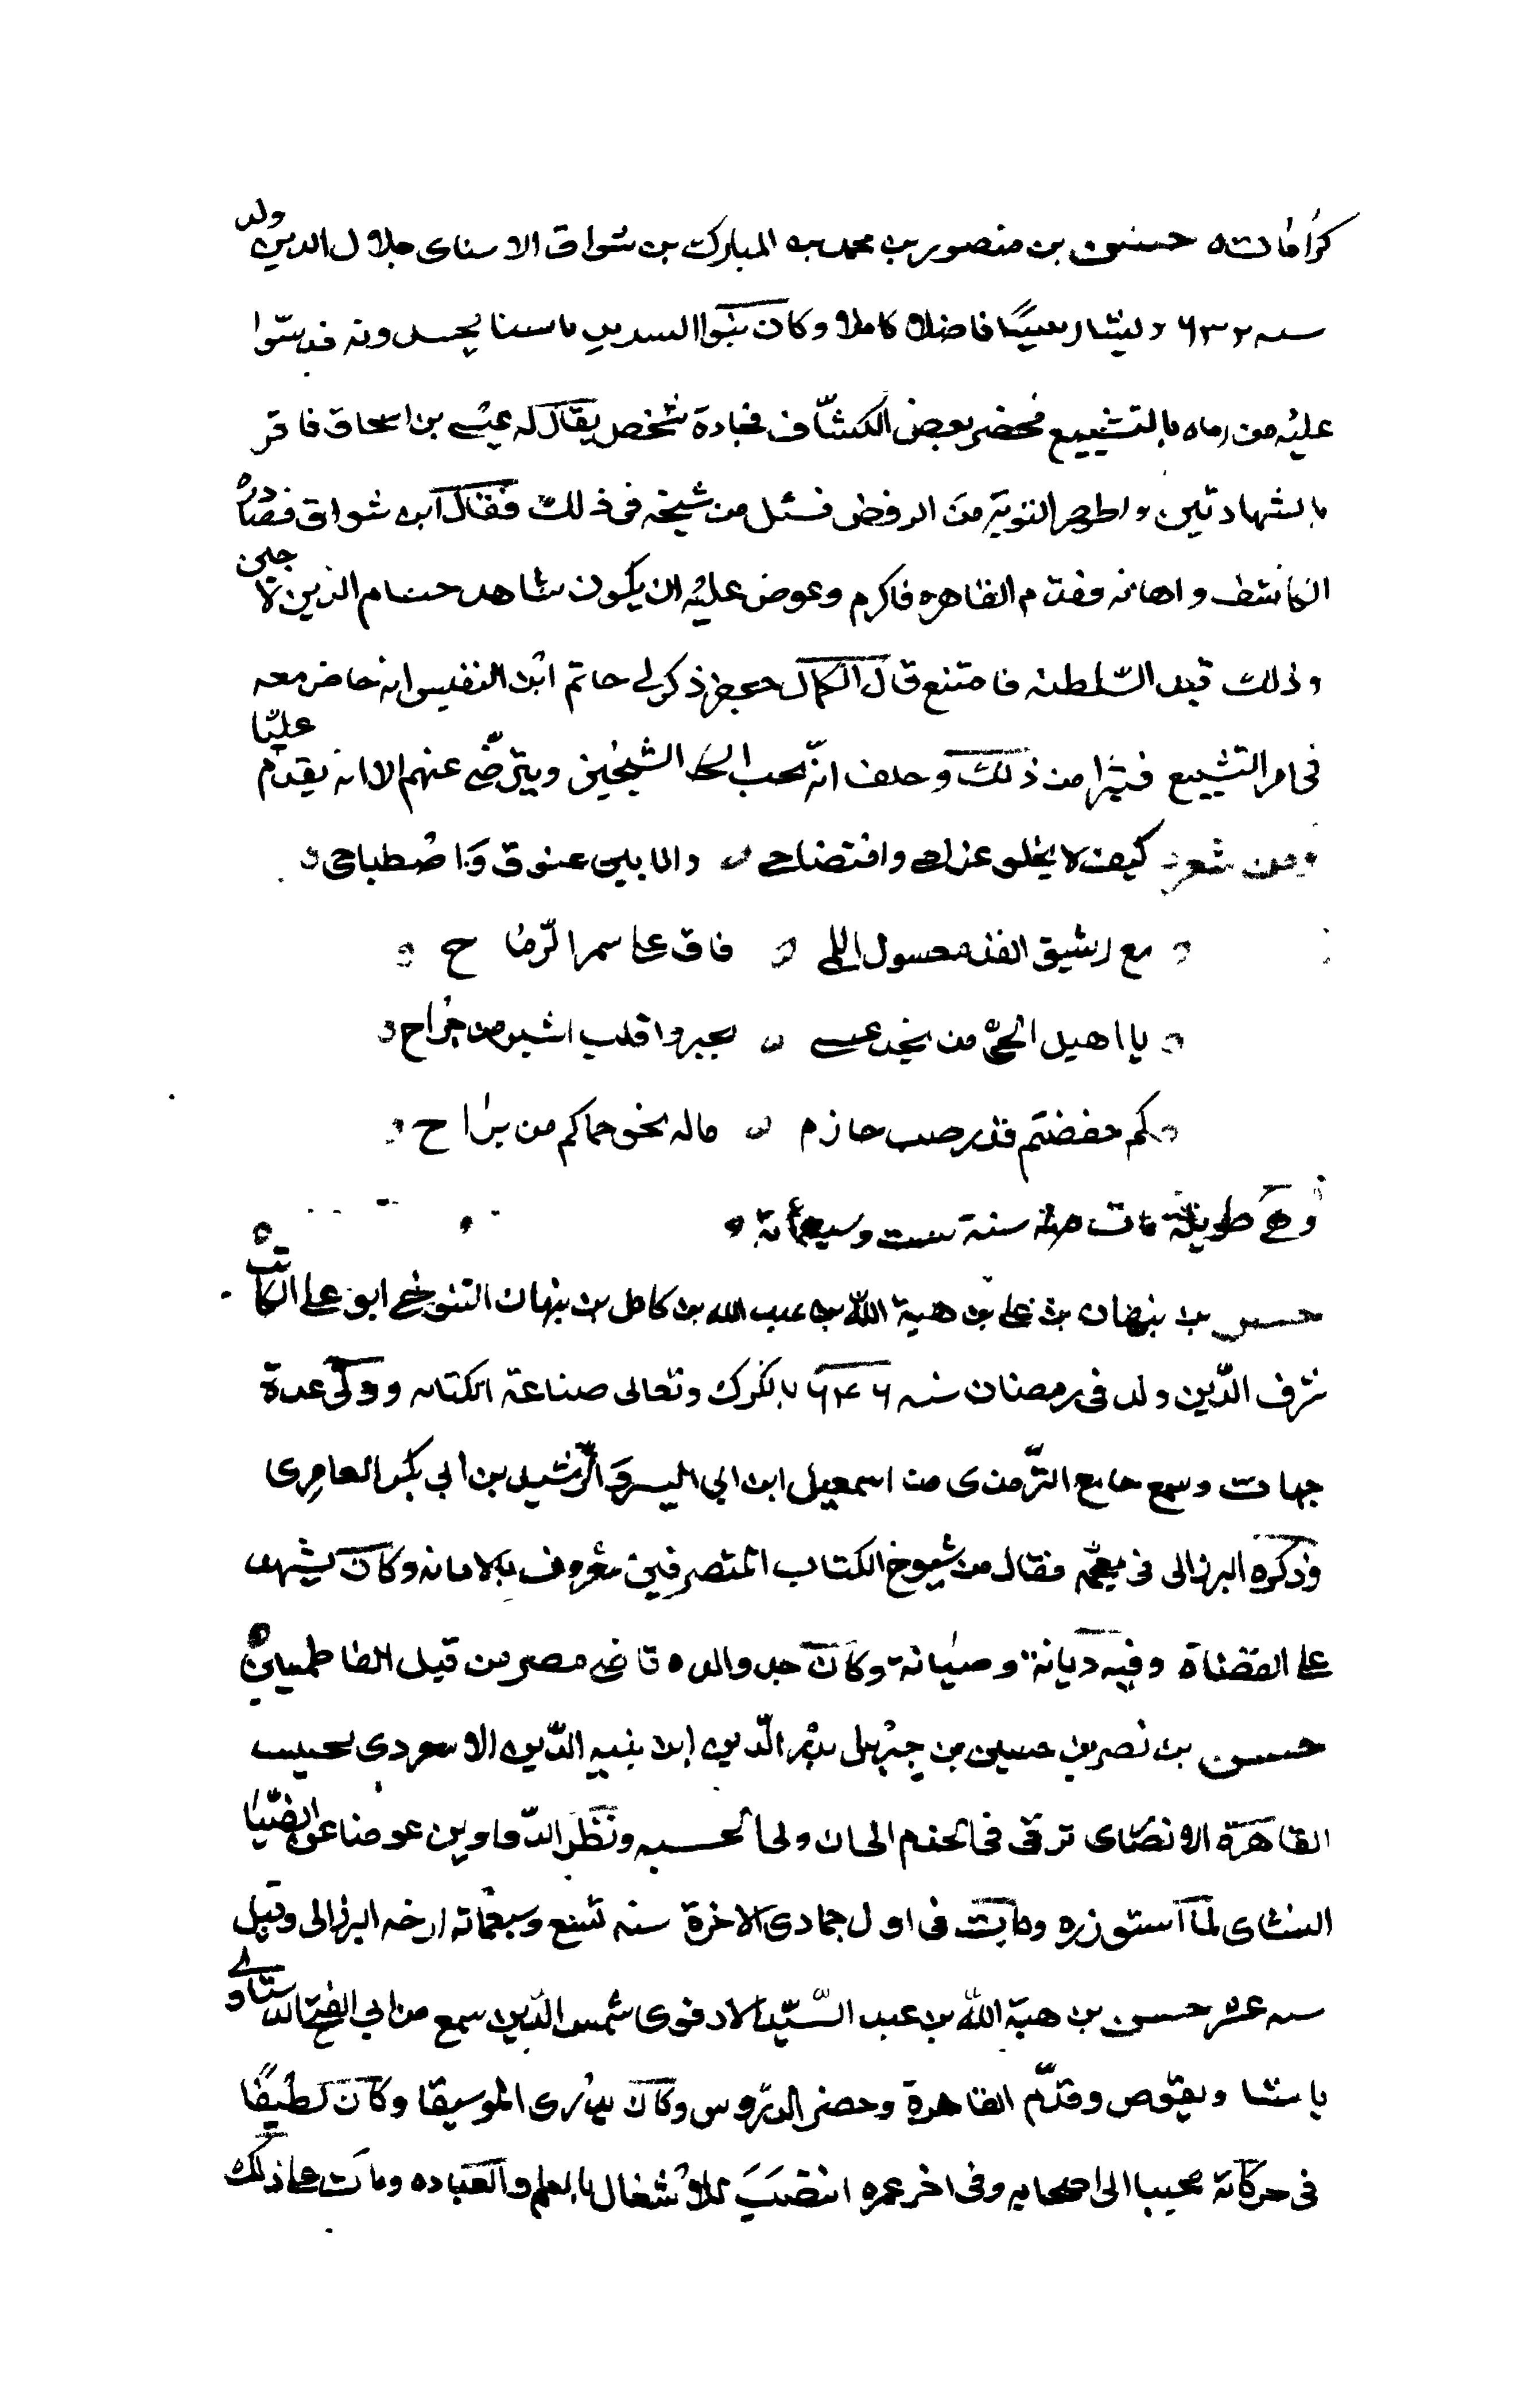 كراماته حسن بن منصور بن محمد بن المبارك بن شواق الاسناى جلال الدين ولد
سنه ٦٣٢ ونشا رييسًا فاضلا كاملا وكان بنوا السديد باسنا يحسدونه فدسّوا
عليه من رماه بالتشييع فحضر بعض الكشّاف فجاده شخص يقال له عيسى بن اسحاق فاقر
بالشهادتين واظهر التوبة من الرفض فسئل من شيخه فى ذلك فقال ابن شواق فصادره
الكاشف واهانه فقدم القاهره فاكرم وعرض عليه ان يكون شاهد حسام الدين لاجين
وذلك قبل السّلطنه فامتنع قال الكمال جعفر ذكر لى حاتم ابن النفيس انه حاضر معه
فى امر التشييع فتبرّا من ذلك وحلف انّه يحب الشيخين ويترضّى عنهم الا انه يقدم عليّا
ومن شعره كيف لا يحلو غرامى وافتضاحى وانا بين غبوق واصطباحى
مع رشيق القد معسول اللمى فاق على سمر الرّماح
يا اهيل الحىّ من نجد عسى تجبروا قلب اسير من جراح
كم خفضتم قدر صب جازم ماله نحو حماكم من براح
وهى طويلة مات سنة ست وسبعمائة
حسن بن نبهان بن على بن هبة اللّه بن عبد الله بن كامل بن نبهان التنوخى ابو على الكاتب
شرف الدّين ولد فى رمضان سنه ٦٤٦ بالكرك وتعالى صناعة الكتابه وولى عدة
جهات وسمع جامع الترّمذى من اسمعيل ابن ابى اليسر والرّشيد بن ابى بكر العامرى
وذكره البرزالى فى معجمه فقال من شيوخ الكتاب المتصرفين معروف بالامانه وكان يشهد
على القضاة وفيه ديانة وصيانة وكان جد والده قاضى مصر من قبل الفاطميين
حسن بن نصر بن حسين بن جبريل بدر الّدين ابن نبيه الدّين الاسعردى محتسب
القاهرة الانصاى ترقى فى الخدم الى ان ولى الحسبه ونظر الدّواوين عوضا عن الضّيا
النشاى لما استوزره ومات فى اول جمادى الاخرة سنه تسع وسبعمائه ارخه البرزالى وقيل
سنه عشر حسن بن هبة اللّه بن عبد السّيّد الادفوى شمس الدّين سمع من ابى الفتح الدشناوى
باسنا وبقوص وقدّم القاهرة وحضر الدروس وكان يدرى الموسيقا وكان لطيفًا
فى حركاته محببا الى اصحابه وفى اخر عمره انتصب للاشغال بالعلم والعباده ومات على ذلك